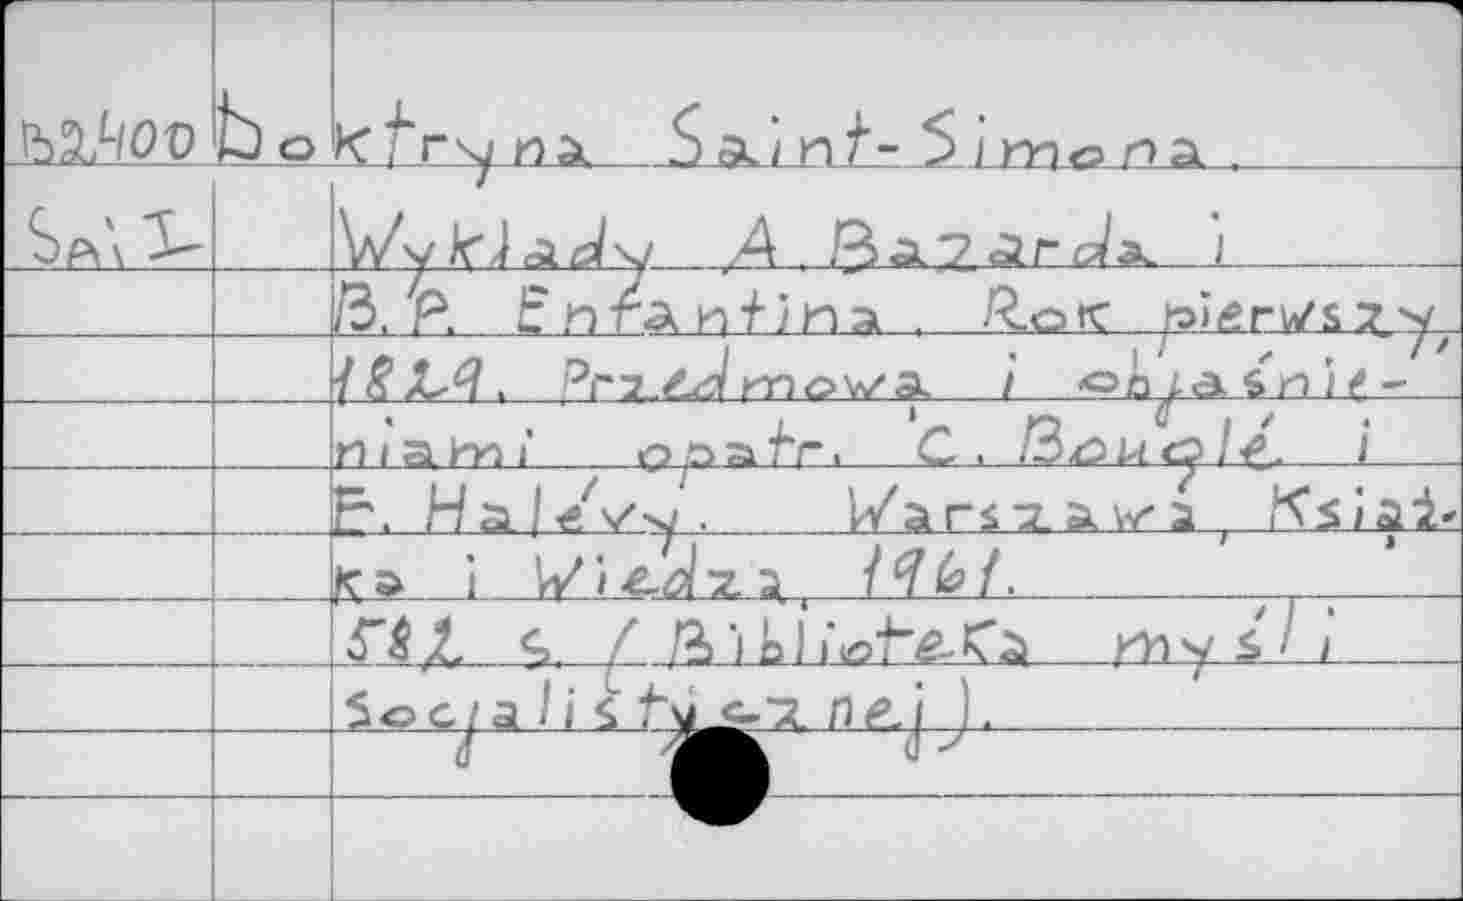 Doktryna Saint-Simona.
Wykłady A. Bazarda i
B. P. Enfantina. Rok pierwszy,
1829. Przedmowa i objaśnie-
niami opatr. C. Bouglé i
E. Halévy. Warszawa, Książ-
ka i Wiedza, 1961.
582 s. (Biblioteka myśli
Socjalistycznej).